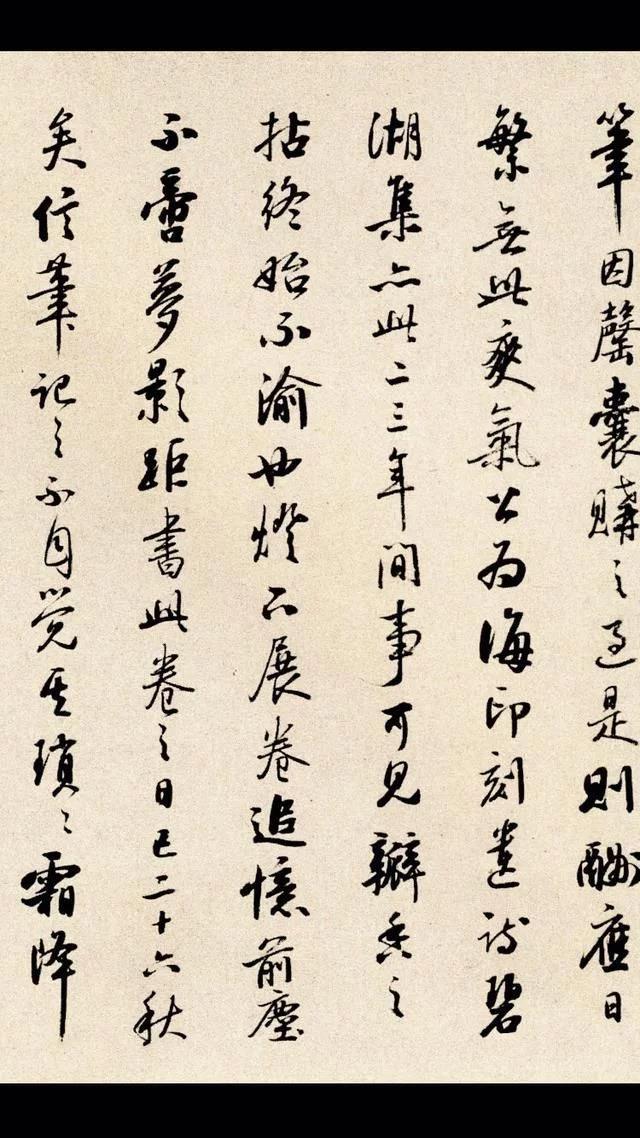 筆因罄囊購之過是則酬應日
繁無此爽氣公為海印刻遺詩碧
湖集亦此二三年間事可見瓣香之
拈終始不渝也燈下展卷追憶前塵
不啻夢影距書此卷之日已二十六秋
矣信筆記之不自覺其瑣々霜降